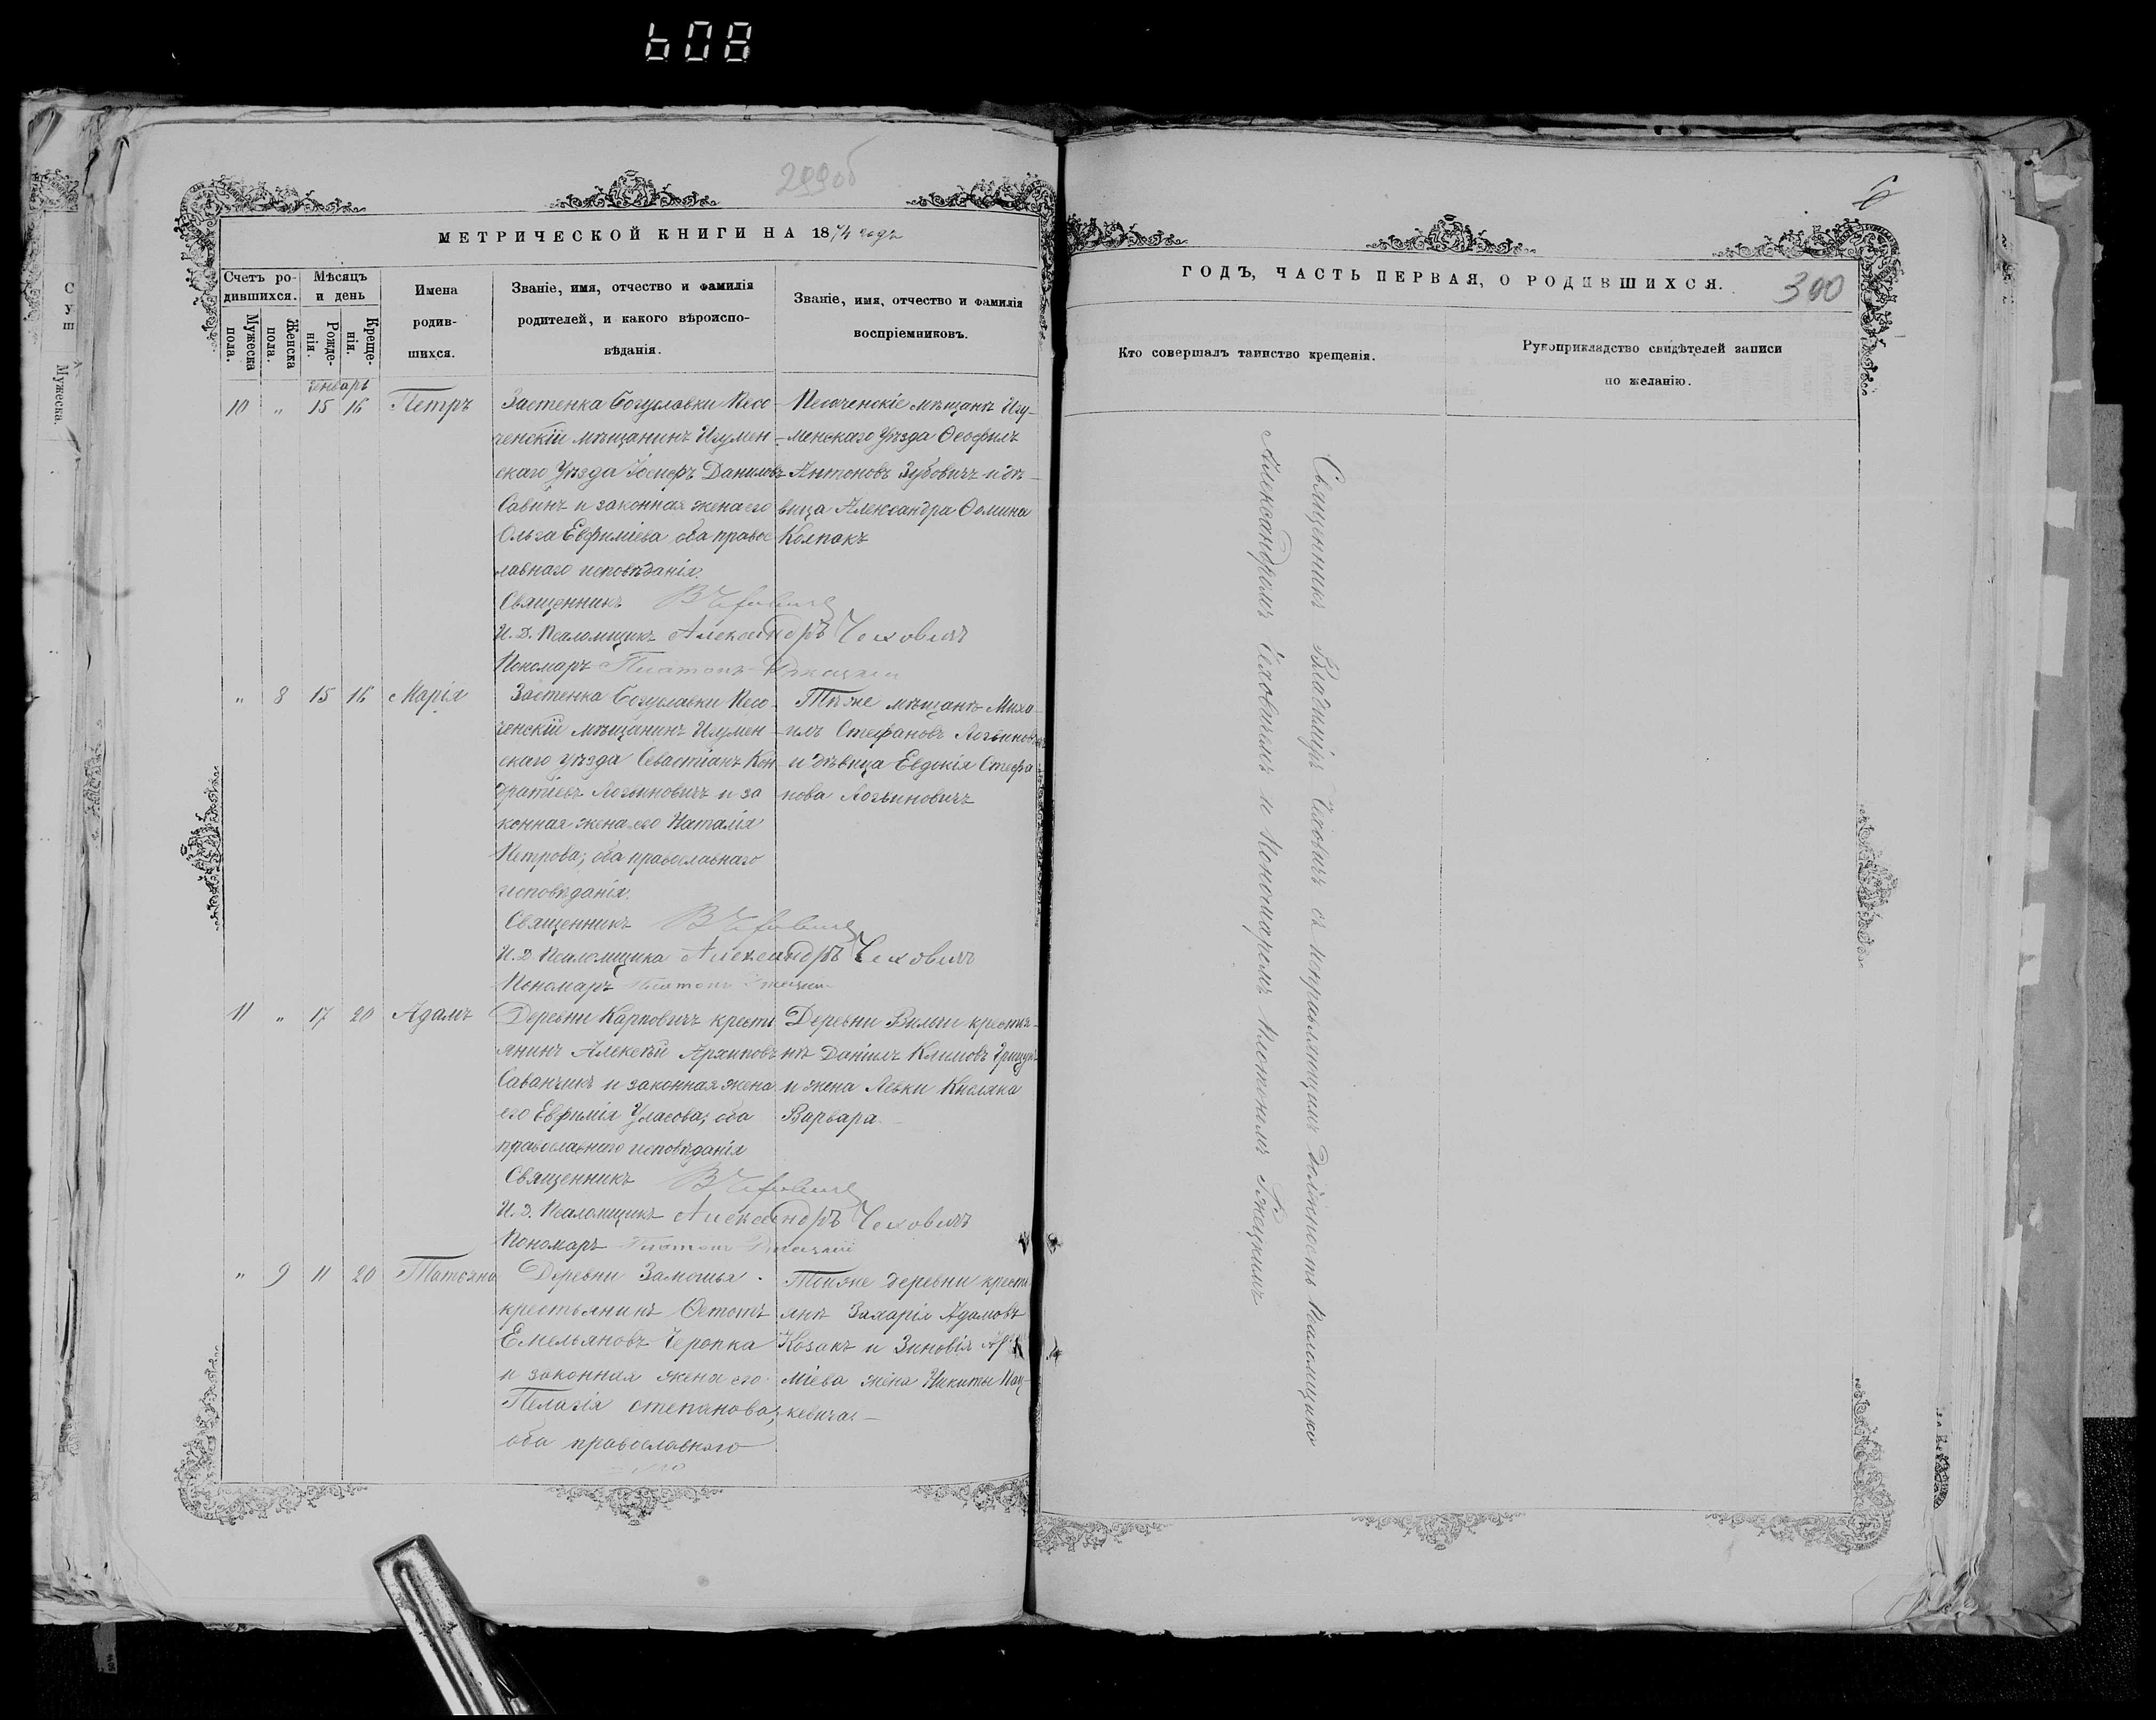 608
299об
МЕТРИЧЕСКОЙ КНИГИ НА 1874 годъ
Счетъ ро-
дившихся.
Мѣсяцъ
и день
Мужеска
пола.
Женска
пола.
Рожде-
нія.
Креще-
нія.
Имена
родив-
шихся.
Званіе, имя, отчество и фамилія
родителей, и какого вѣроиспо-
вѣданія.
Званіе, имя, отчество и фамилія
воспріемниковъ.
Январь
10 " 15 16 Петръ
Застенка Богуславки Песо-
ченскій мѣщанинъ Игумен-
скаго Уѣзда Іосифъ Даниловъ
Савинъ и законная жена его
Ольга Евфиміева оба правос
лавнаго исповѣданія.
Священникъ
И. Д. Псаломщикъ Александръ Чеховичъ
Пономаръ Платонъ
Песоченскіе мѣщане Игу-
менскаго Уѣзда Ѳеофилъ
Антоновъ Зубовичъ и дѣ-
вица Александра Ѳомина
Колпакъ
" 8 15 16 Марія
Застенка Богуславки Песо-
ченскій мѣщанинъ Игумен-
скаго уѣзда Севастіанъ Кон
дратіевъ Логвиновичъ и за
конная жена его Наталія
Петрова; оба православнаго
исповѣданія.
Священникъ
И. Д. Псаломщика Александръ Чеховичъ
Пономаръ Платонъ
Тѣже мѣщане Миха-
илъ Стефановъ Логвиновичъ
и дѣвица Евдокія Стефа
нова Логвиновичъ
11 " 17 20 Адамъ
Деревни Карповичъ крестъ
янинъ Алексѣй Архиповъ
Саванчикъ и законная жена
его Евфимія Уласова; оба
православнаго исповѣданія
Священникъ
И. Д. Псаломщикъ Александръ Чеховичъ
Пономаръ Платонъ
Деревни Вильчи крестья-
не Даніилъ Климовъ Грицукъ
и жена Левки Кисляка
Варвара
" 9 11 20 Татьяна
Деревни Замошья
крестьянинъ
Емельяновъ Черопка
и законная жена его
Пелагія степанова;
оба православнаго
Тойже деревни кресть
яне Захарія Адамовъ
Козакъ и Зиновія
міева жена Никиты Пац-
кевича
300
ГОДЪ, ЧАСТЬ ПЕРВАЯ, О РОДИВШИХСЯ.
Кто совершалъ таинство крещенія.
Рукоприкладство свидѣтелей записи
по желанію.
Священникъ Владиміръ Чеховичъ съ исправляющимъ должность Псаломщика
Александромъ Чеховичемъ и Пономаремъ Платономъ Ржецкимъ
Мужеска.